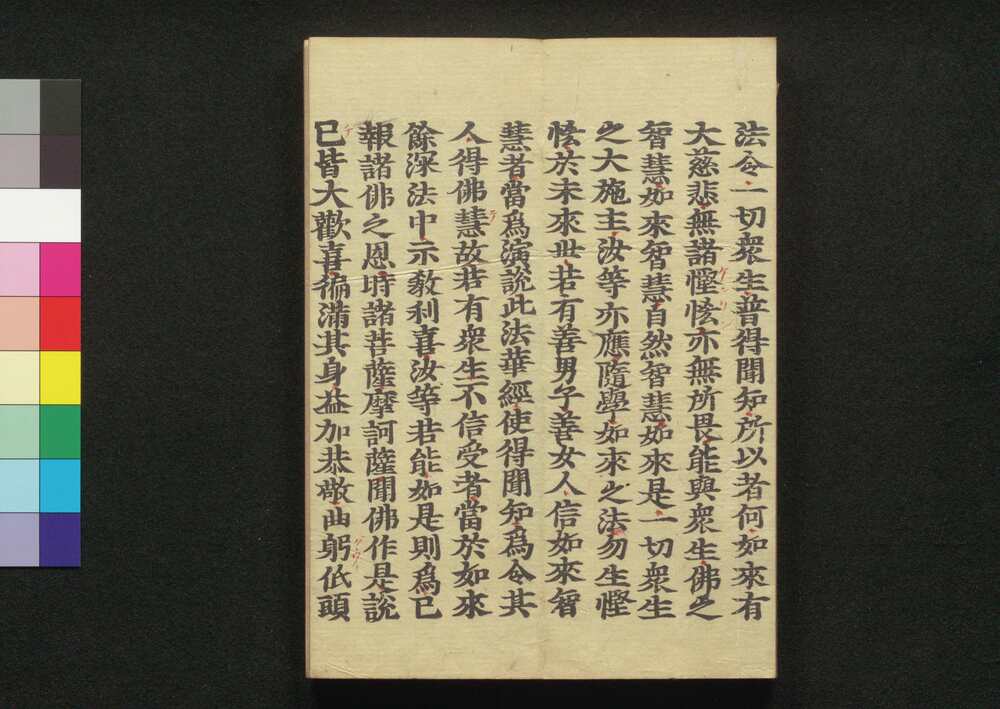 法令一切衆生普得聞知所以者何如來有
大慈悲無諸慳悋亦無所畏能與衆生佛之
智慧如來智慧自然智慧如來是一切衆生
之大施主汝等亦應隨學如來之法勿生慳
悋於未來世若有善男子善女人信如來智
慧者當爲演說此法華經使得聞知爲令其
人得佛慧故若有衆生不信受者當於如來
餘深法中示敎利喜汝等若能如是則爲已
報諸佛之恩時諸菩薩摩訶薩聞佛作是說
已皆大歡喜徧滿其身益加恭敬曲躬低頭